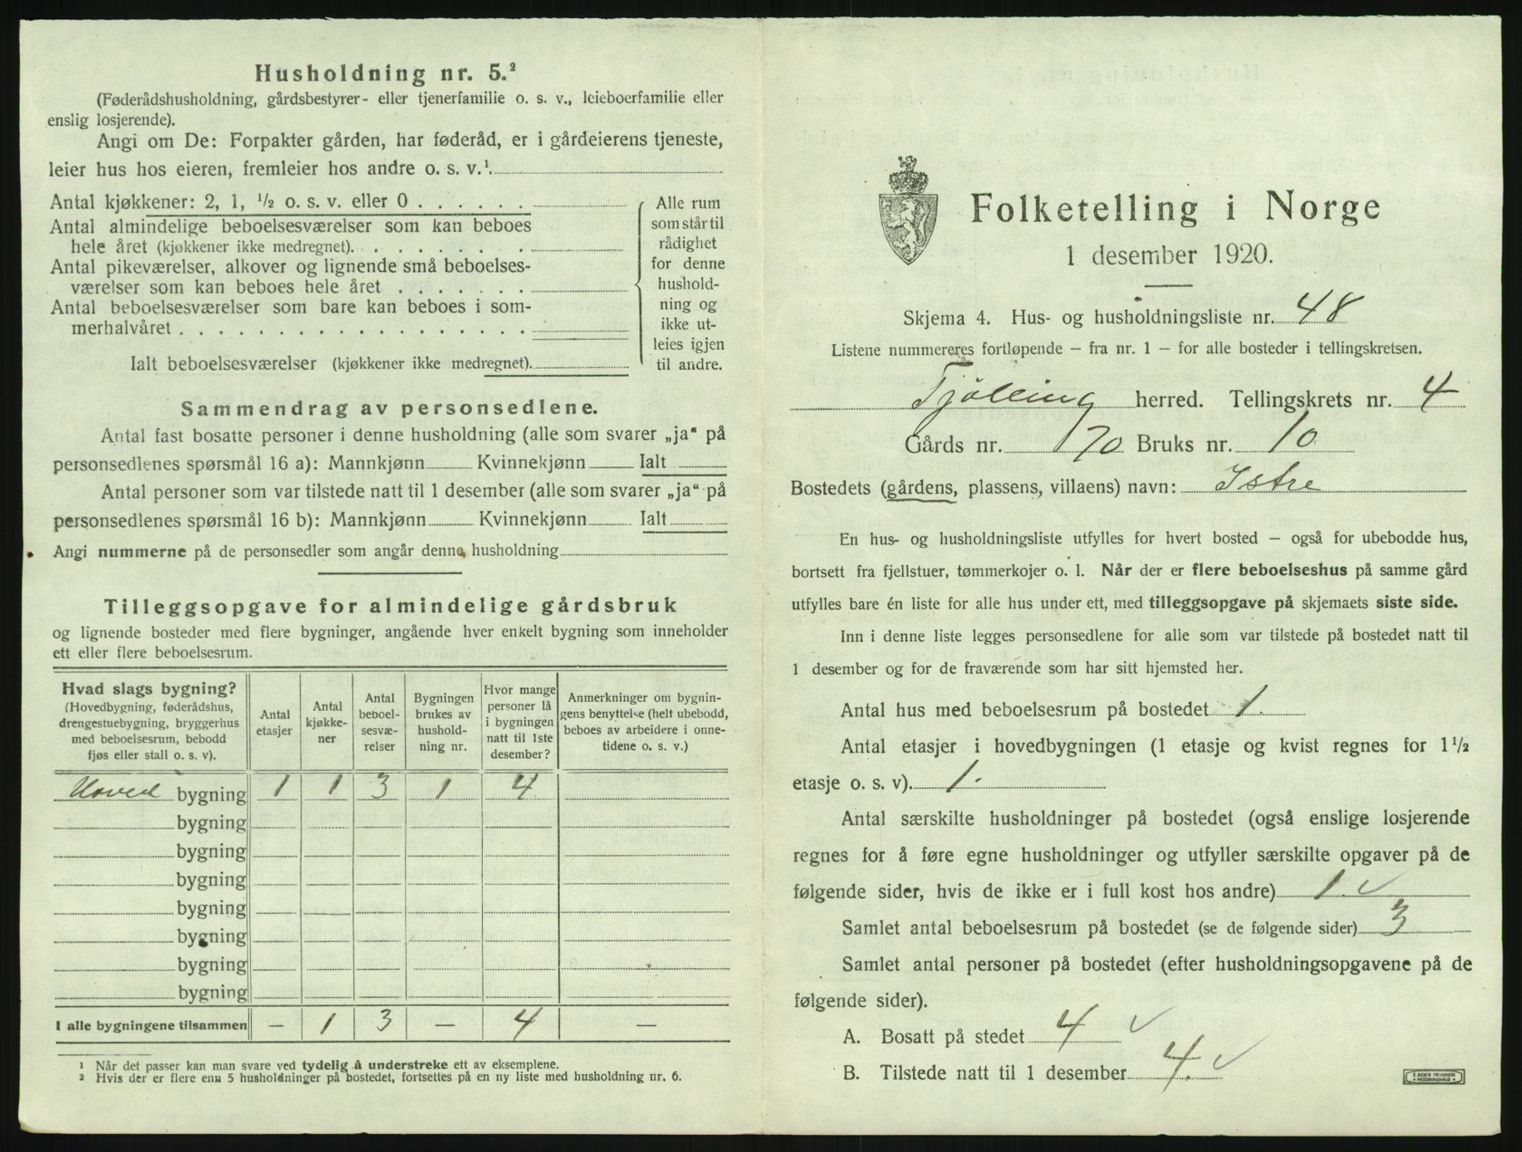 Husholdning nr. 5.²
(Føderådshusholdning, gårdsbestyrer- eller tjenerfamilie o. s. v., leieboerfamilie eller
enslig losjerende).
Angi om De: Forpakter gården, har føderåd, er i gårdeierens tjeneste,
leier hus hos eieren, fremleier hos andre o. s. v.¹.
Antal kjøkkener: 2, 1, ½ o. s. v. eller 0 . . . . . .
Antal almindelige beboelsesværelser som kan beboes
hele året (kjøkkener ikke medregnet). . . . . . . . .
Antal pikeværelser, alkover og lignende små beboelses-
værelser som kan beboes hele året . . . . . . .
Antal beboelsesværelser som bare kan beboes i som-
merhalvåret . . . . . . . . . . . . . . . . . .
Ialt beboelsesværelser (kjøkkener ikke medregnet).
Alle rum
som står til
rådighet
for denne
hushold-
ning og
ikke ut-
leies igjen
til andre.
Sammendrag av personsedlene.
Antal fast bosatte personer i denne husholdning (alle som svarer „ja" på
personsedlenes spørsmål 16 a): Mannkjønn Kvinnekjønn Ialt
Antal personer som var tilstede natt til 1 desember (alle som svarer „ja" på
personsedlenes spørsmål 16 b): Mannkjønn Kvinnekjønn Ialt
Angi nummerne på de personsedler som angår denne husholdning
Tilleggsopgave for almindelige gårdsbruk
og lignende bosteder med flere bygninger, angående hver enkelt bygning som inneholder
ett eller flere beboelsesrum.
Hvad slags bygning?
(Hovedbygning, føderådshus,
drengestuebygning, bryggerhus
med beboelsesrum, bebodd
fjøs eller stall o. s. v).
Antal
etasjer
Antal
kjøkke-
ner
Antal
beboel-
sesvæ-
relser
Bygningen
brukes av
hushold-
ning nr.
Hvor mange
personer lå
i bygningen
natt til 1ste
desember?
Anmerkninger om bygnin-
gens benyttelse (helt ubebodd,
beboes av arbeidere i onne-
tidene o. s. v.)
Hoved bygning 1 1 3 1 4
bygning
bygning
bygning
bygning
bygning
bygning
bygning
I alle bygningene tilsammen — 1 3 — 4 —
¹ Når det passer kan man svare ved tydelig å understreke ett av eksemplene.
² Hvis der er flere enn 5 husholdninger på bostedet, fortsettes på en ny liste med husholdning nr. 6.
Folketelling i Norge
1 desember 1920.
Skjema 4. Hus- og husholdningsliste nr. 48
Listene nummereres fortløpende — fra nr. 1 — for alle bosteder i tellingskretsen.
Tjølling herred. Tellingskrets nr. 4
Gårds nr. 70 Bruks nr. 10
Bostedets (gårdens, plassens, villaens) navn: Istre
En hus- og husholdningsliste utfylles for hvert bosted — også for ubebodde hus,
bortsett fra fjellstuer, tømmerkojer o. l. Når der er flere beboelseshus på samme gård
utfylles bare én liste for alle hus under ett, med tilleggsopgave på skjemaets siste side.
Inn i denne liste legges personsedlene for alle som var tilstede på bostedet natt til
1 desember og for de fraværende som har sitt hjemsted her.
Antal hus med beboelsesrum på bostedet 1.
Antal etasjer i hovedbygningen (1 etasje og kvist regnes for 1½
etasje o. s. v). 1.
Antal særskilte husholdninger på bostedet (også enslige losjerende
regnes for å føre egne husholdninger og utfyller særskilte opgaver på de
følgende sider, hvis de ikke er i full kost hos andre) 1. ✓
Samlet antal beboelsesrum på bostedet (se de følgende sider) 3
Samlet antal personer på bostedet (efter husholdningsopgavene på de
følgende sider).
A. Bosatt på stedet 4 ✓
B. Tilstede natt til 1 desember 4. ✓